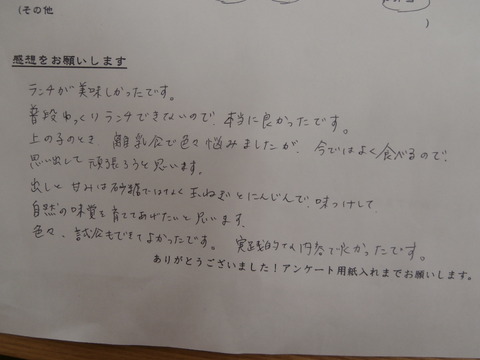 (その他
)
感想をお願いします
ランチが美味しかったです。
普段ゆっくりランチできないので、本当に良かったです。
上の子のとき、離乳食で色々悩みましたが、今ではよく食べるので、
思い出して頑張ろうと思います。
出しと甘みは砂糖ではなく玉ねぎとにんじんで、味つけして
自然の味覚を育ててあげたいと思います。
色々、試食もできてよかったです。 実践的な内容で良かったです。
ありがとうございました！アンケート用紙入れまでお願いします。